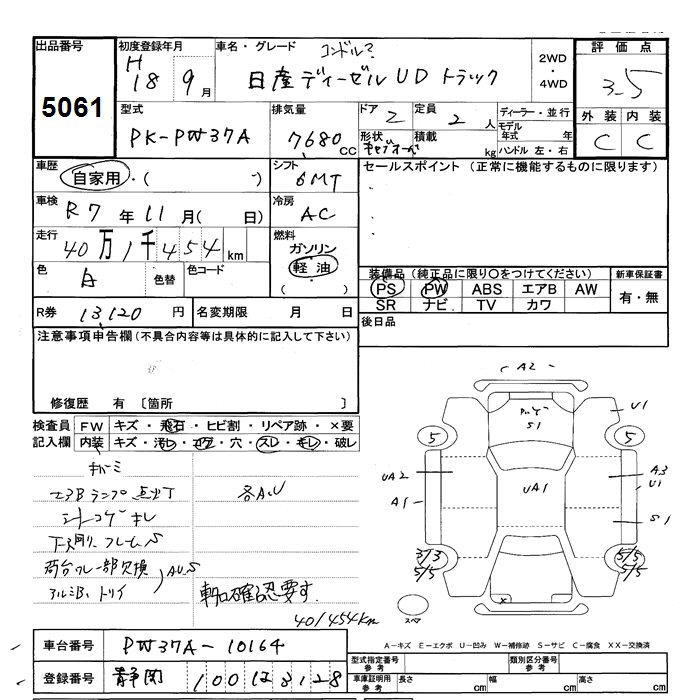 出品番号 初度登録年月 車名・グレード コンドル? 2WD・4WD 評価点
5061 H18 9月 日産ディーゼルUDトラック 3.5
型式 排気量 ドア 2 定員 2人 ディーラー・並行 外装 内装
PK-PW37A 7680cc 形状 キャブオーバ 積載 kg モデル年式 年 ハンドル 左・右 C C
車歴 自家用・( ) シフト 6MT セールスポイント (正常に機能するものに限ります)
車検 R7年11月( 日) 冷房 AC
走行 40万1千454km 燃料 ガソリン 軽油 ( )
色 白 色替 色コード
装備品 (純正品に限り○をつけてください) 新車保証書
PS PW ABS エアB AW 有・無
SR ナビ TV カワ
R券 13120円 名変期限 月 日 後日品
注意事項申告欄 (不具合内容等は具体的に記入して下さい)
修復歴 有 [箇所 ]
検査員 FW キズ・飛石・ヒビ割・リペア跡・×要
記入欄 内装 キズ・汚レ・コゲ・穴・スレ・キレ・破レ
エアBランプ点灯 各A.U
シートコゲキレ
下廻り、フレームS
荷台フレ一部欠損
アルミB、トリイ AU.S
軸確認要す
401454km
A2
S1
U1
5 5
UA2 UA1 A3
U1
A1 S1
3/3 5/5
5/5 5/5
×
スペア
A-キズ E-エクボ U-凹み W-補修跡 S-サビ C-腐食 XX-交換済
車台番号 PW37A-10164
登録番号 静岡 100
型式指定番号 参考 類別区分番号 参考
車庫証明用 参考 長さ cm 幅 cm 高さ cm